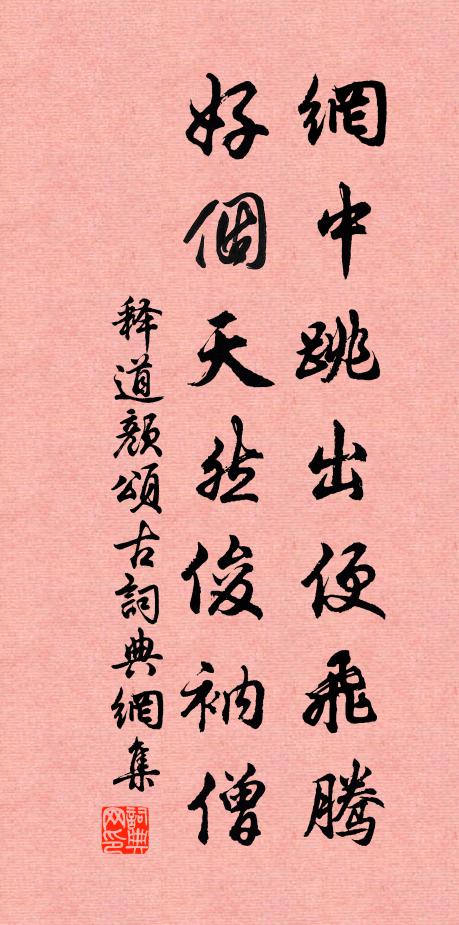 網中跳出便飛騰
好個天然俊衲僧
释道顏頌古詞典網集
詞典网印